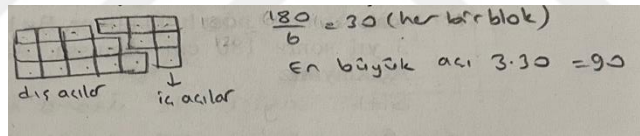 180/6 = 30 (her bir blok)
En büyük açı 3.30 = 90
dış açılar
iç açılar